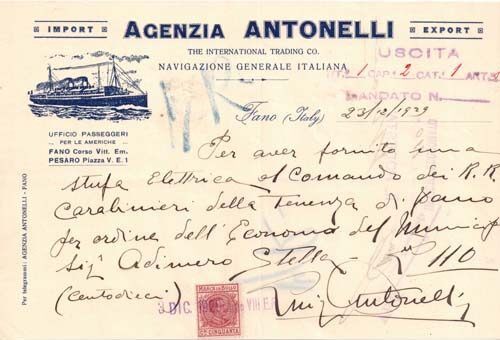 IMPORT
AGENZIA ANTONELLI
EXPORT
THE INTERNATIONAL TRADING CO.
NAVIGAZIONE GENERALE ITALIANA
USCITA
1 CAP. 2 CAT. 1 ART.
MANDATO N.
Fano (Italy) 23/12/1929
UFFICIO PASSEGGERI
PER LE AMERICHE
FANO Corso Vitt. Em.
PESARO Piazza V. E. 1
Per telegrammi: AGENZIA ANTONELLI - FANO
Per aver fornito una
stufa Elettrica al Comando dei R.R.
Carabinieri della Tenenza di Fano
per ordine dell'Economo del Municip
Sigr Adimero Stella £ 110
(centodieci)
Luigi Antonelli
3 DIC. VIII E.F.
MARCA DA BOLLO
CINQUANTA